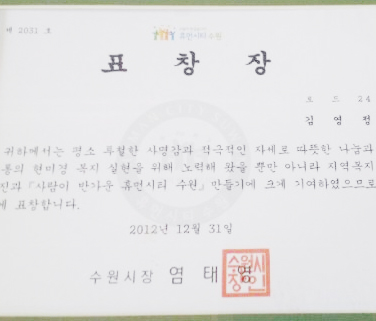 제 2031 호
휴먼시티 수원
표 창 장
코 드 24
김 영 정
귀하께서는 평소 투철한 사명감과 적극적인 자세로 따뜻한 나눔과
통의 현미경 복지 실현을 위해 노력해 왔을 뿐만 아니라 지역복지
진과 「사람이 반가운 휴먼시티 수원」 만들기에 크게 기여하였으므로
에 표창합니다.
2012년 12월 31일
수원시장 염 태 영
수원시
장인